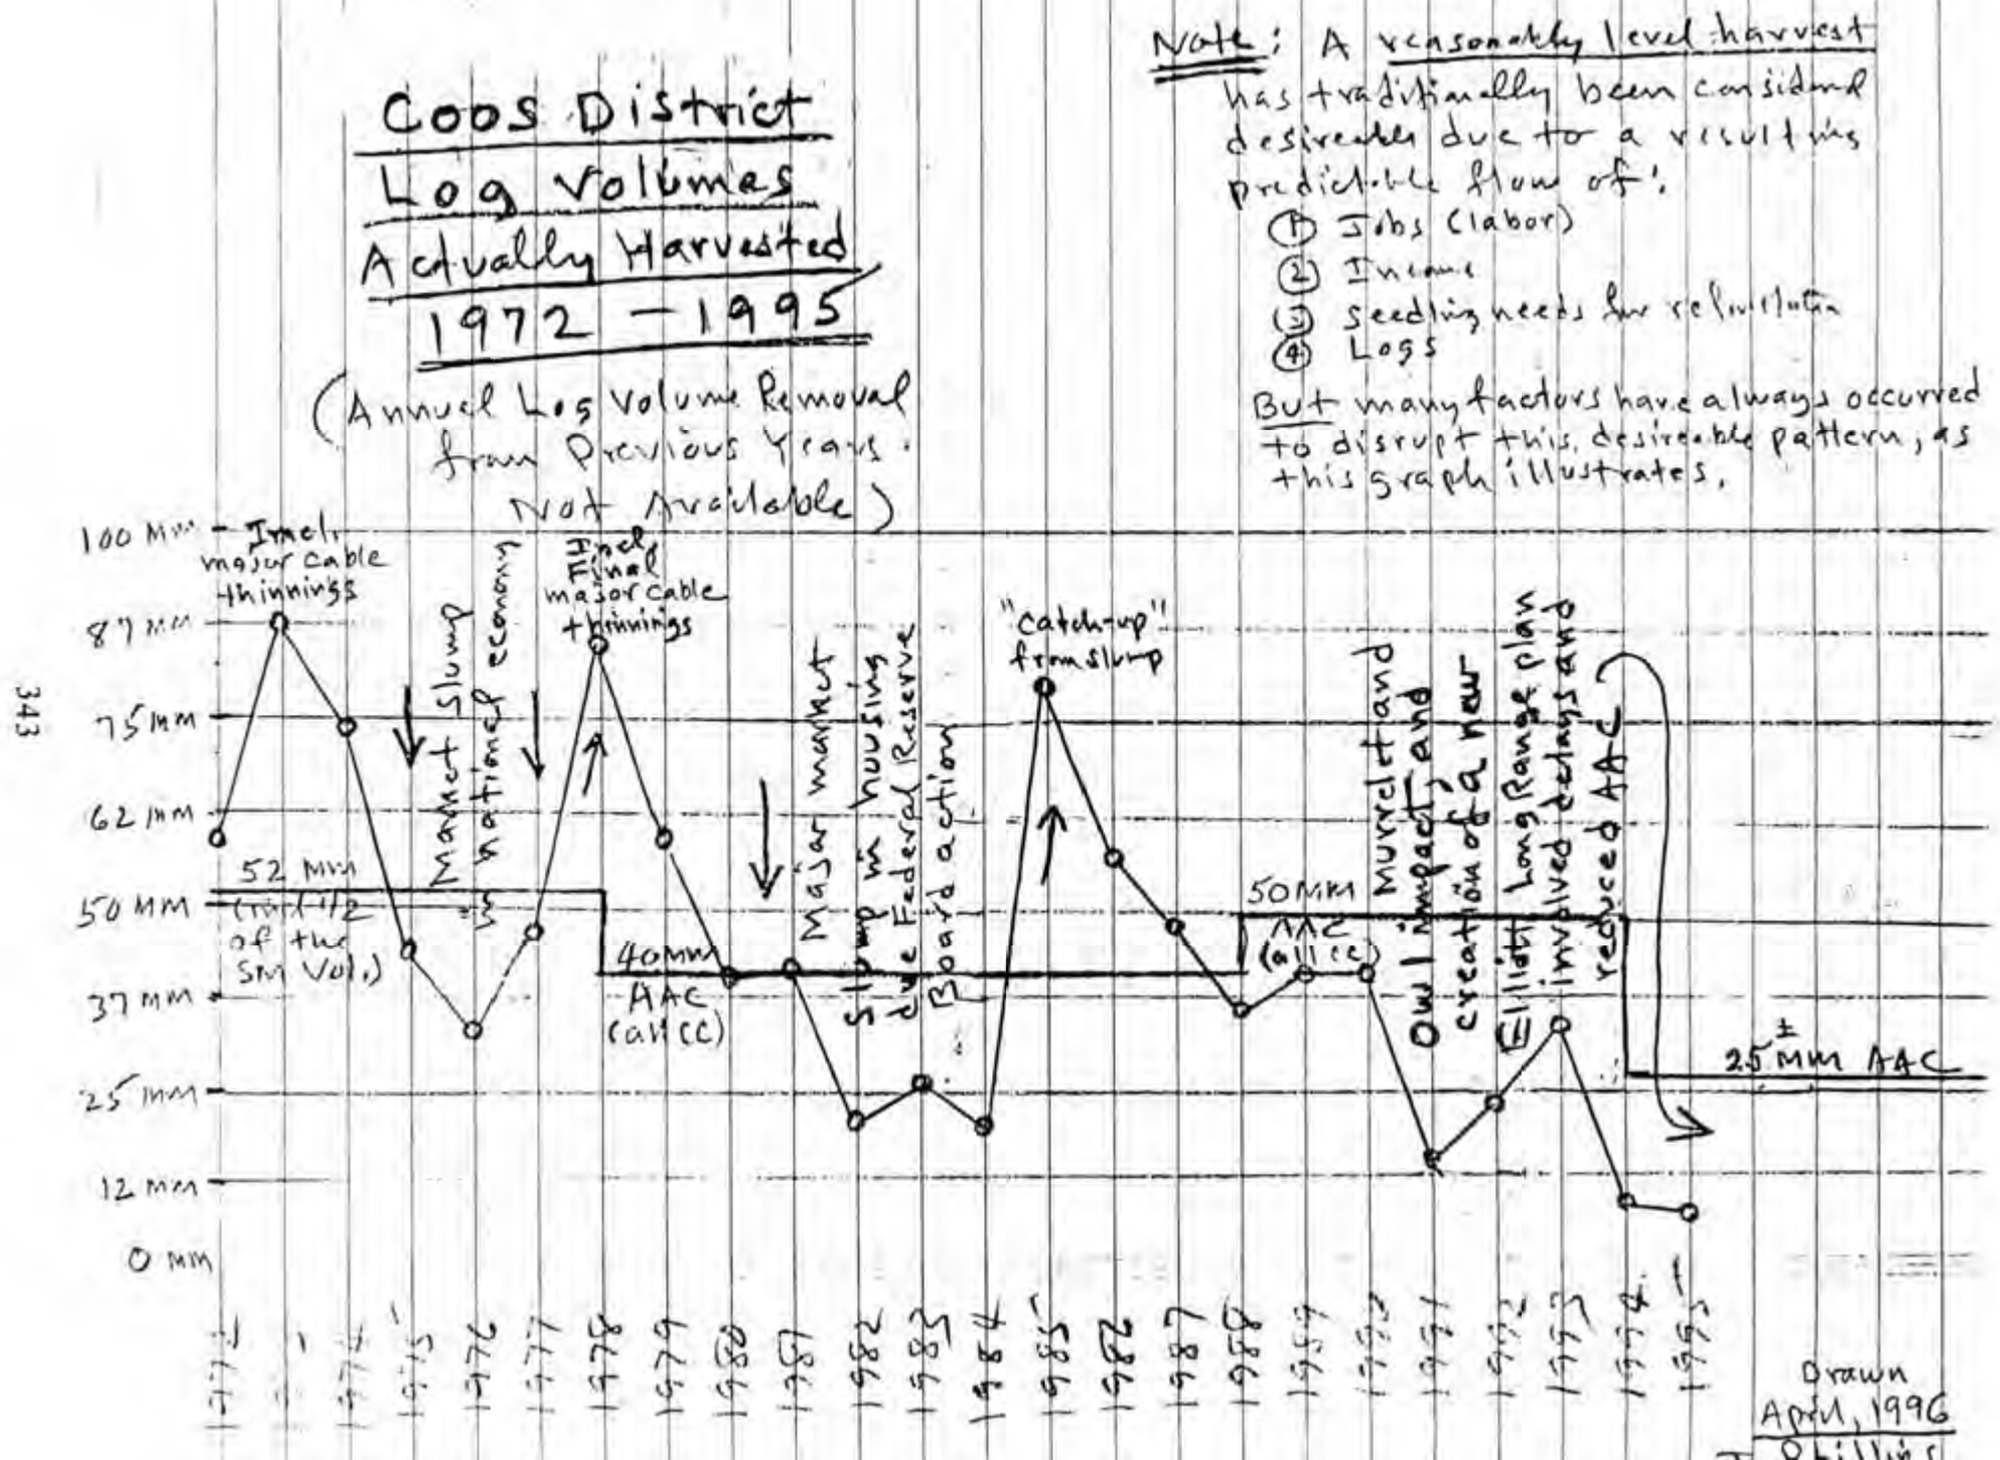 Coos District
Log Volumes
Actually Harvested
1972 - 1995
(Annual Log Volume Removal
from Previous Years
Not Available)
Note: A reasonably level harvest
has traditionally been considered
desireable due to a resulting
predictable flow of:
① Jobs (labor)
② Income
③ Seedling needs for
④ Logs
But many factors have always occurred
to disrupt this desireable pattern, as
this graph illustrates.
100 MM
87 MM
75 MM
62 MM
50 MM
37 MM
25 MM
12 MM
0 MM
Incl.
major cable
thinnings
52 MM
(incl 1/2
of the
Sm Vol.)
Market Slump
in national economy
Incl.
Final
major cable
thinnings
40 MM
AAC
(all CC)
Major market
Slump in housing
due Federal Reserve
Board action
"catch-up"
from slump
50 MM
AAC
(all CC)
Murrelet and
Owl impact, and
creation of a new
Elliott Long Range plan
involved delays and
reduced AAC
±
25 MM AAC
1972
1974
1975
1976
1977
1978
1979
1980
1981
1982
1983
1984
1985
1986
1987
1988
1989
1990
1991
1992
1993
1994
1995
Drawn
April, 1996
Phillips
343